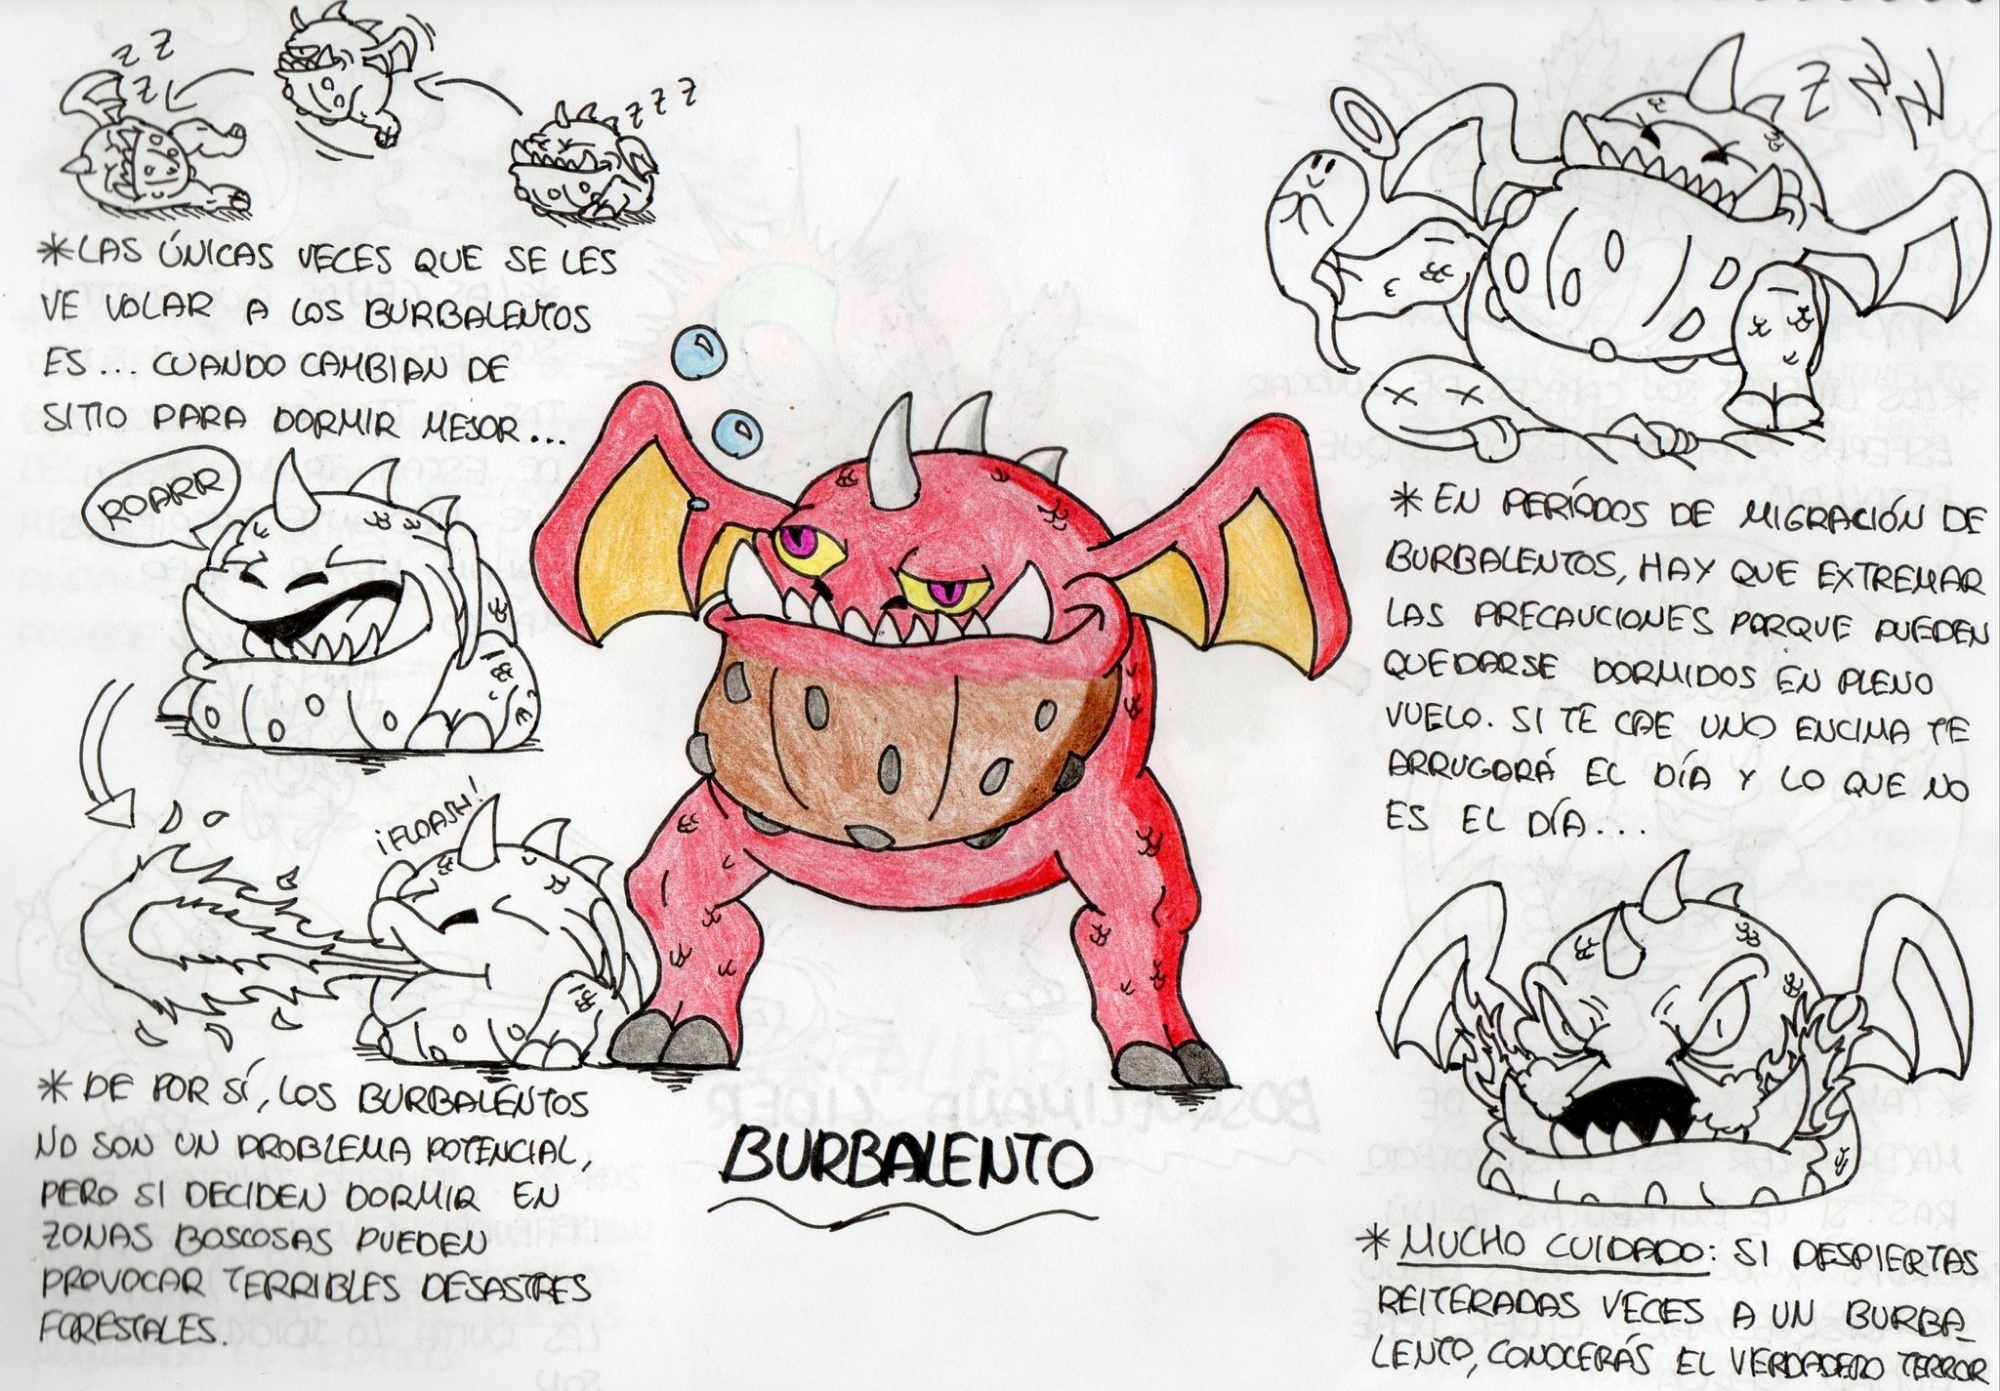 Z Z
Z
Z Z Z
*LAS ÚNICAS VECES QUE SE LES
VE VOLAR A LOS BURBALENTOS
ES... CUANDO CAMBIAN DE
SITIO PARA DORMIR MEJOR...
ROARR
¡FLOASH!
* DE POR SÍ, LOS BURBALENTOS
NO SON UN PROBLEMA POTENCIAL,
PERO SI DECIDEN DORMIR EN
ZONAS BOSCOSAS PUEDEN
PROVOCAR TERRIBLES DESASTRES
FORESTALES.
BURBALENTO
Z Z Z
* EN PERÍODOS DE MIGRACIÓN DE
BURBALENTOS, HAY QUE EXTREMAR
LAS PRECAUCIONES PORQUE PUEDEN
QUEDARSE DORMIDOS EN PLENO
VUELO. SI TE CAE UNO ENCIMA TE
ARRUGARÁ EL DÍA Y LO QUE NO
ES EL DÍA...
* MUCHO CUIDADO: SI DESPIERTAS
REITERADAS VECES A UN BURBA_
LENTO, CONOCERÁS EL VERDADERO TERROR